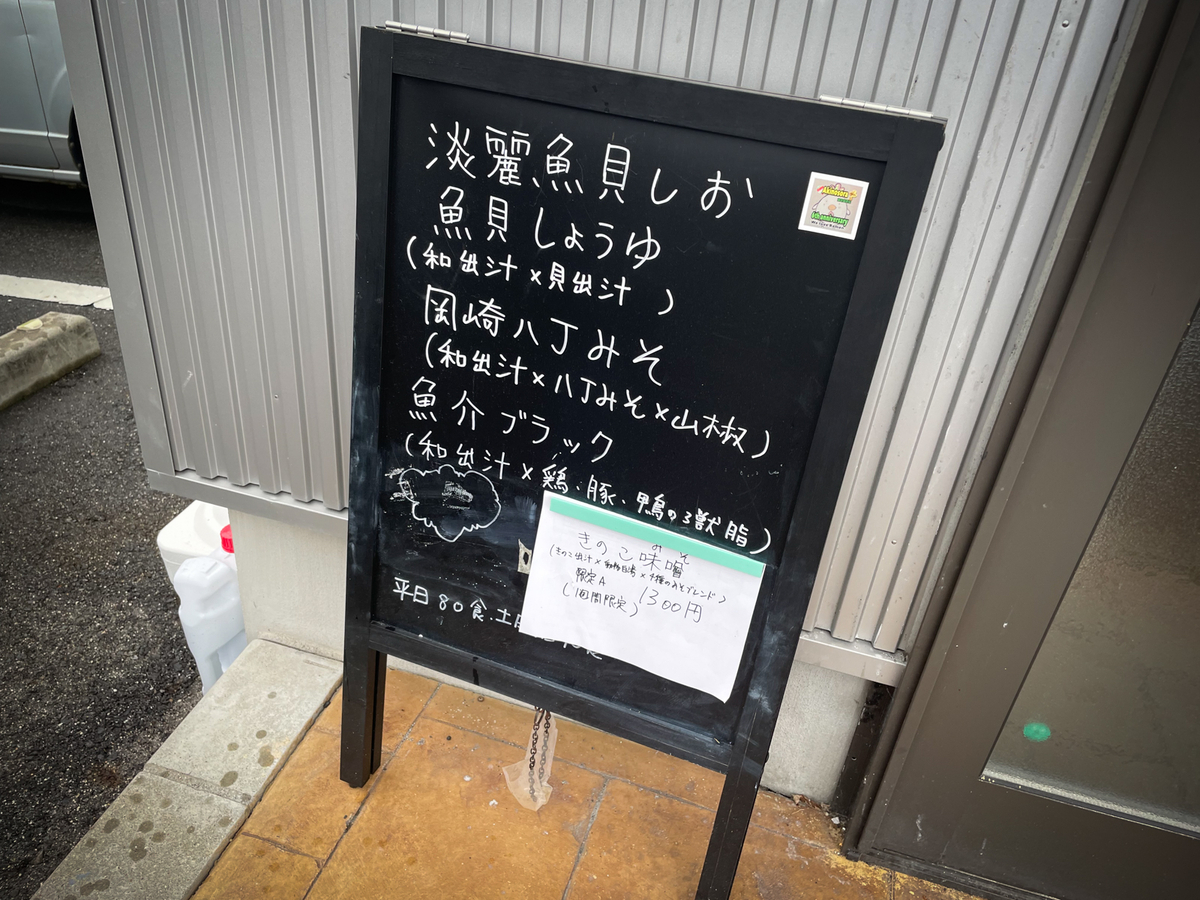 淡麗魚貝しお
魚貝しょうゆ
(和出汁×貝出汁)
岡崎八丁みそ
(和出汁×八丁みそ×山椒)
魚介ブラック
(和出汁×鶏、豚、鴨の3獣脂)
きのこ味噌
みそ
(きのこ出汁××4種のみそブレンド)
限定A 1300円
(1週間限定)
平日80食.土
Akinosora
6th anniversary